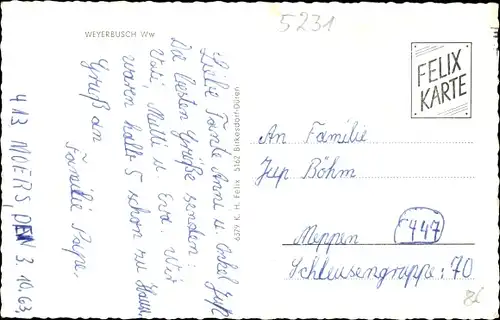 5231
WEYERBUSCH Ww
Liebe Tante Anni u. Onkel Jupp
Die besten Grüße senden:
Vati, Mutti u. Eva. Wir
waren halb 5 schon zu Haus.
Gruß an
Familie Pape.
413 MOERS, DEN 3.10.63
6379 K. H. Felix 5162 Birkesdorf-Düren
FELIX
KARTE
An Familie
Jup Böhm
447
Meppen
Schleusengruppe: 70